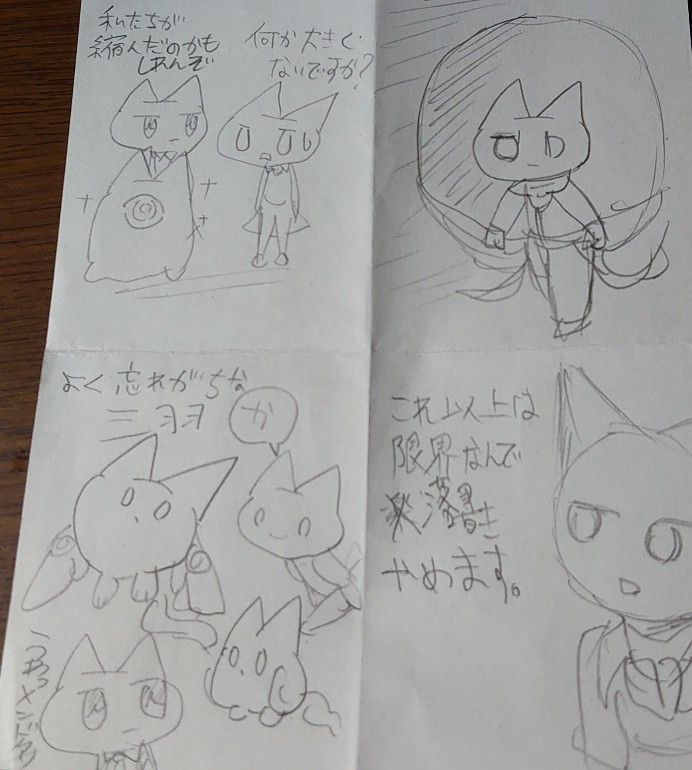 私たちが
縮んだのかも
しれんぞ
何か大きく
ないですか?
よく忘れがちな
三ヨヨ
か
これ以上は
限界なんで
楽落書き
やめます。